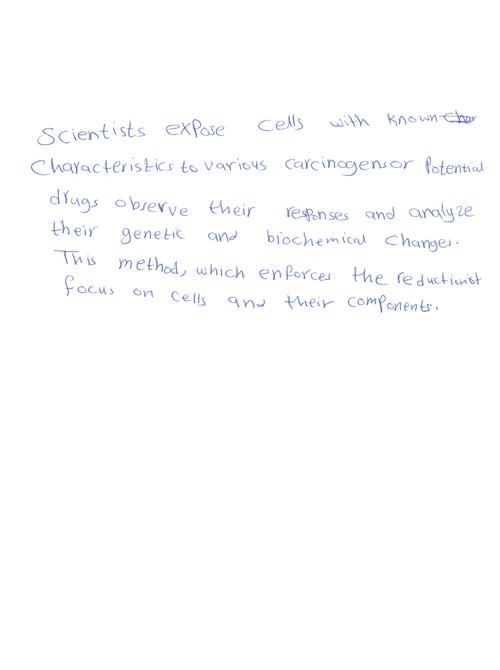 Scientists expose cells with known
Characteristics to various carcinogens or Potential
drugs observe their responses and analyze
their genetic and biochemical changes.
This method, which enforces the reductionist
focus on cells and their components.